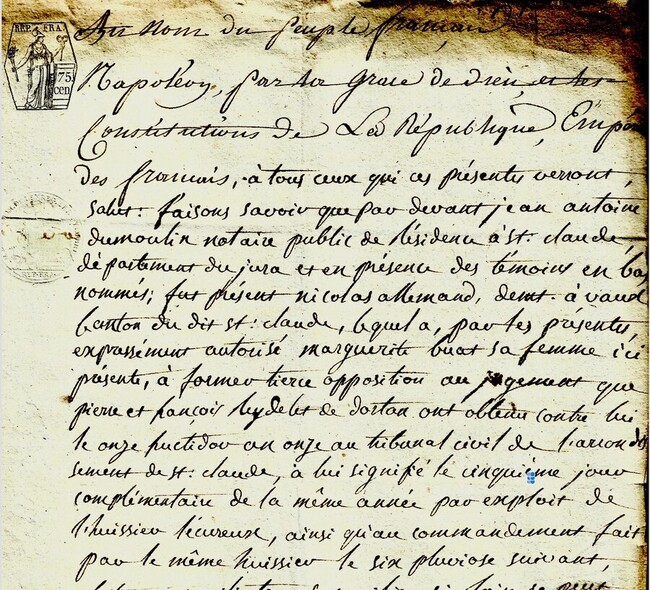 REP. FRA.
75
CEN
Au nom du peuple francais
Napoléon, par la Grace de dieu, et les
Constitutions de La République, Empe
des francais, à tous ceux qui ces présentes verront,
salut: faisons savoir que par devant jean antoine
dumoulin notaire public de résidence à st. claude,
département du jura et en présence des témoins en bas
nommés; fut présent nicolas allemand, demt. à vaux
Canton du dit st. claude, lequel a, par les présentes,
expressément autorisé marguerite buat sa femme ici
présente, à former tierce opposition au jugement que
pierre et françois de dortan ont obtenu contre lui
le onze fructidor an onze au tribunal civil de l'arrondis
sement de st. claude, à lui signifié le cinquième jour
complémentaire de la même année par exploit de
l'huissier lécureux, ainsi qu'au commandement fait
par le même huissier le six pluviose suivant,